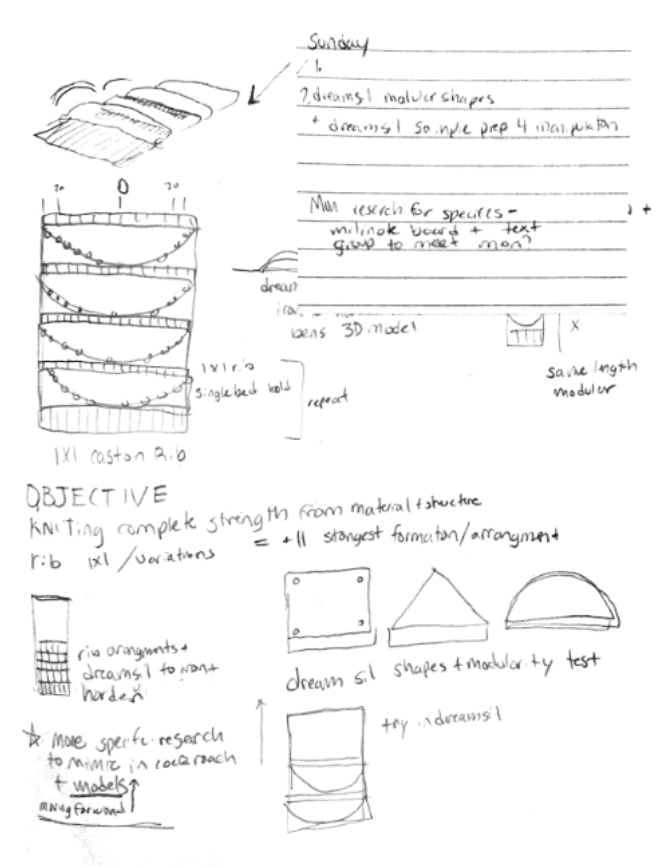 Sunday
1.
2. dreamsil modular shapes
+ dreamsil sample prep 4 manipulation
Mon reserch for specifics -
milinote board + text
group to meet mon?
+
20 0 20
dream
iron
bens 3D model
x
same length
modular
1x1 rib
single bed hold
repeat
1X1 caston Rib
OBJECTIVE
KNITing complete strength from material + structure
rib 1x1 / variations = +11 stongest formation/arrangment
rib arangments +
dreamsil to iron +
harden
dream sil shapes + modularity test
try in dreamsil
☆ more specific research
to mimic in cockroach
+ models
moving forward